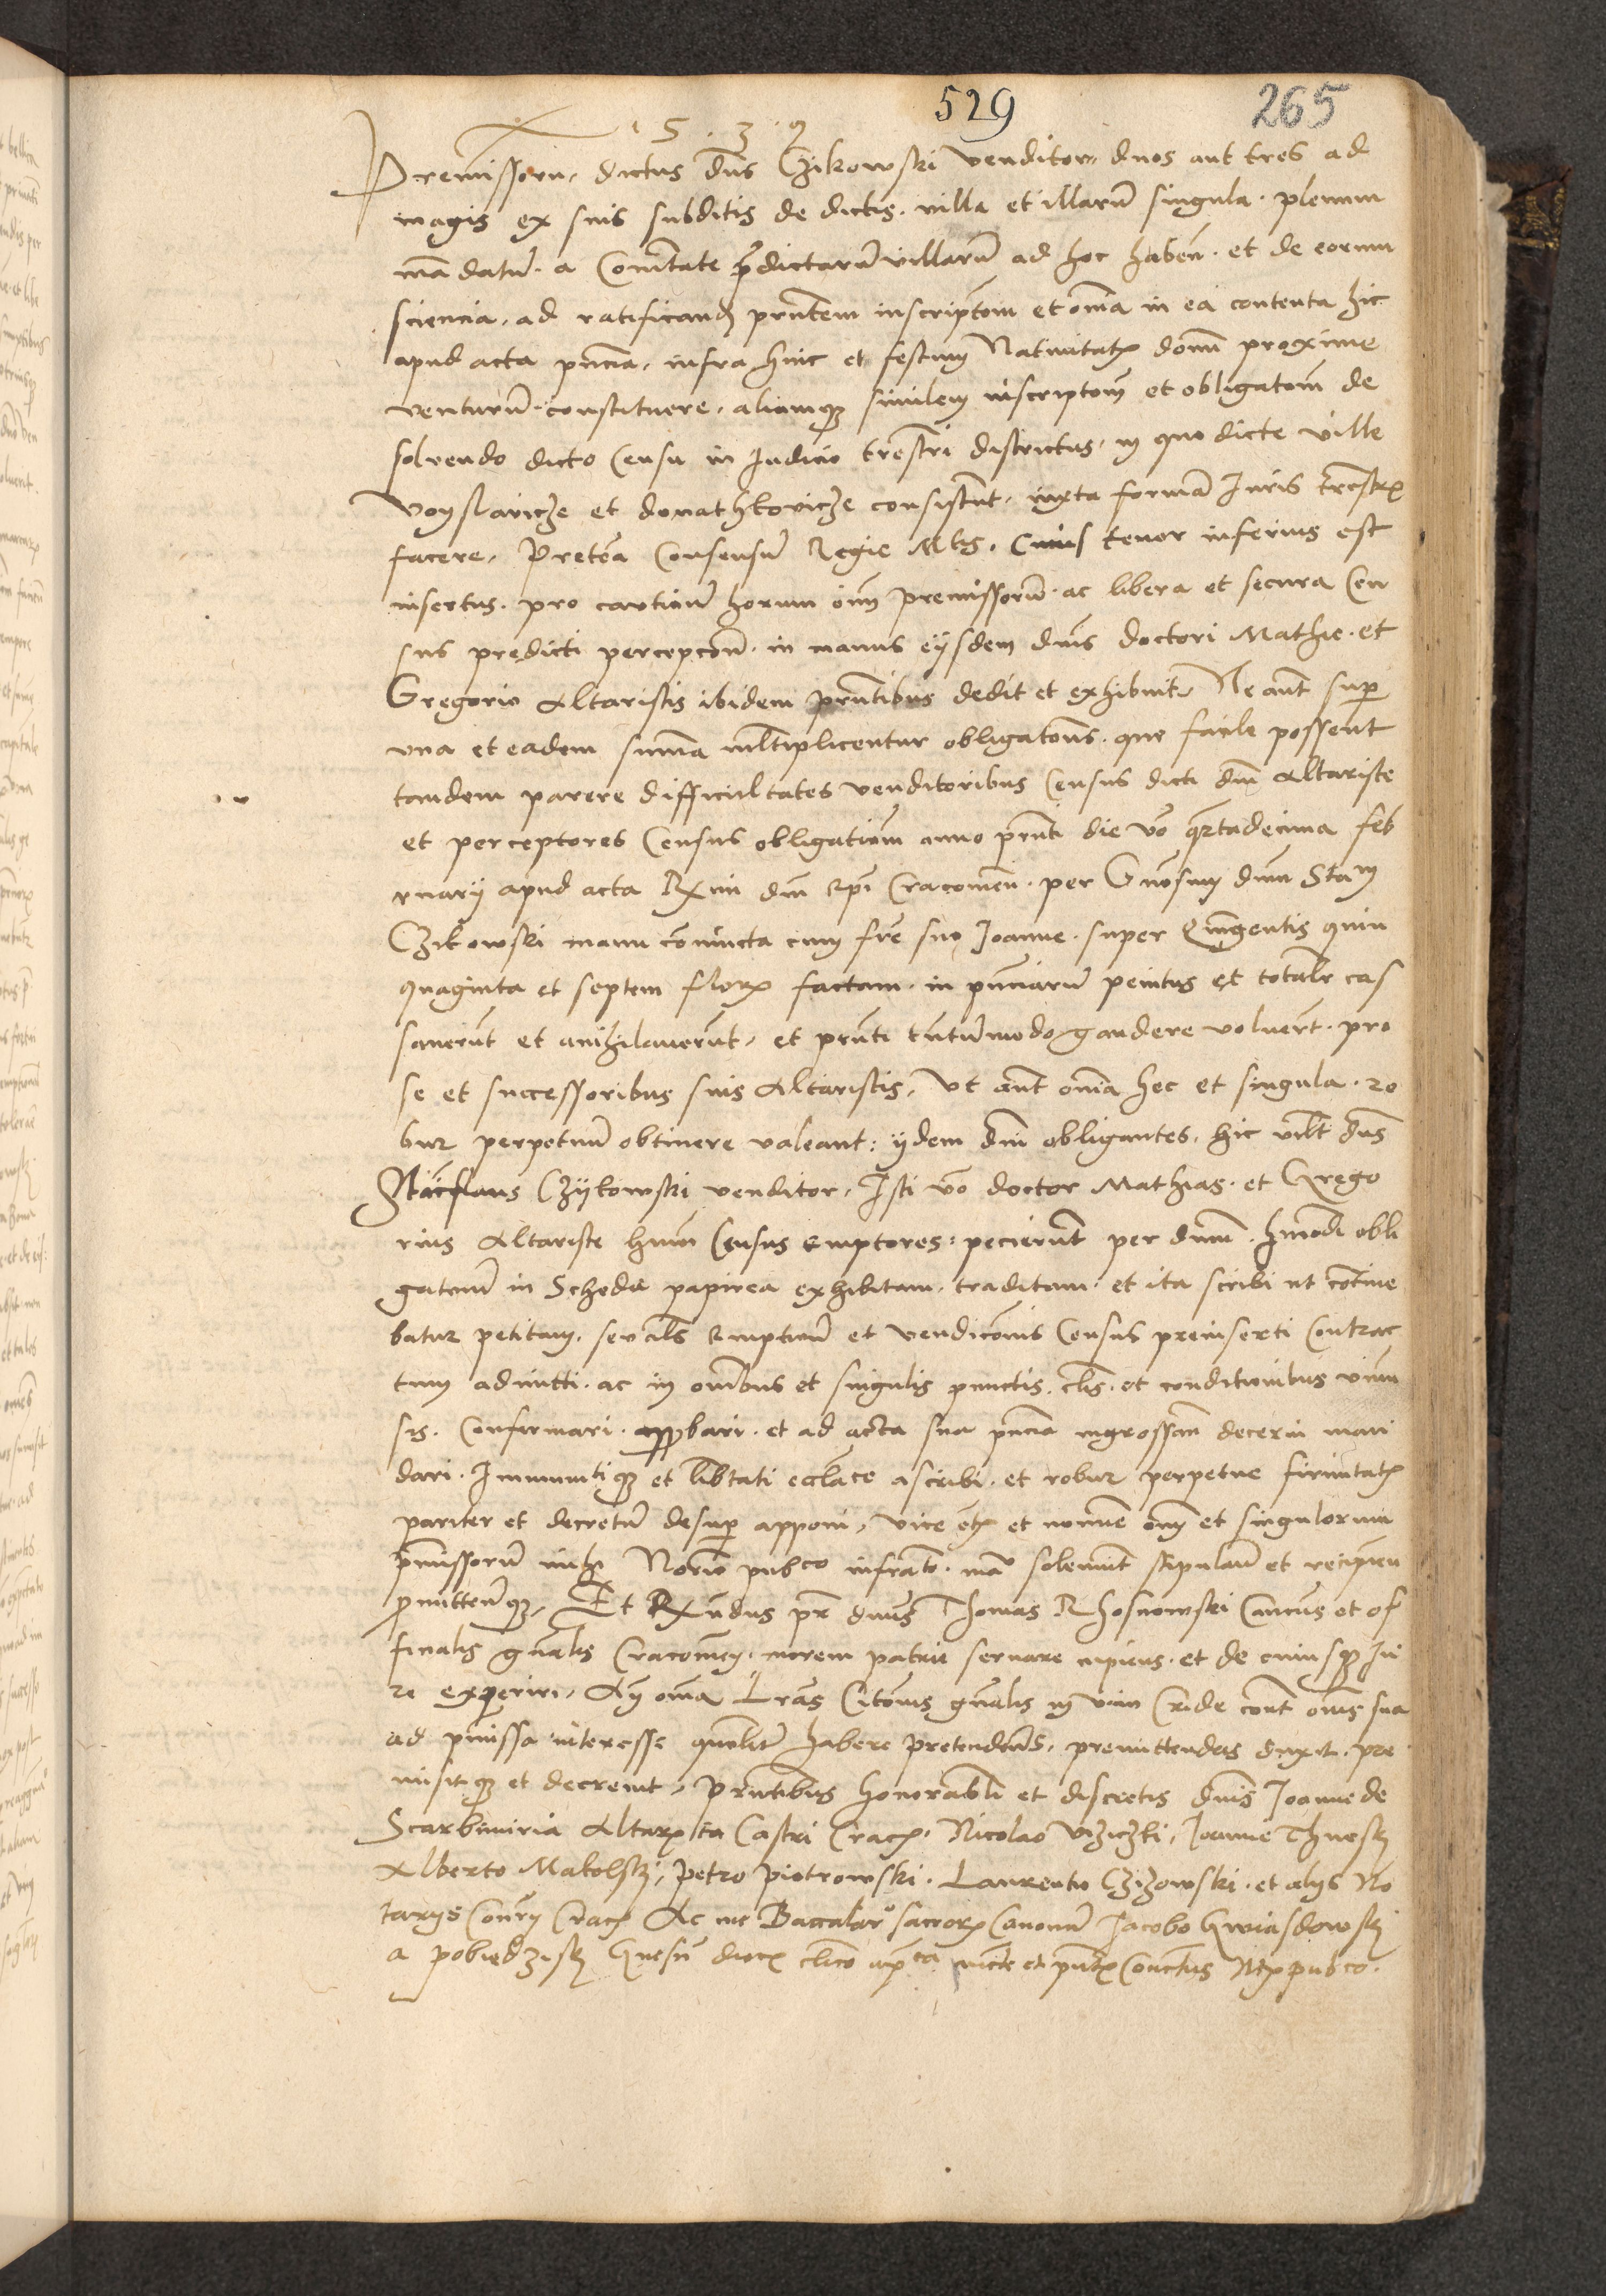 529
265
1 5 . 3 . 9
Premissoru, dictus dns Czikowski venditor, duos aut tres ad
magis ex suis subditis de dictis villa et illarum singula plenum
mandatum a Comtate predictarum villarum ad hoc haben et de eorum
sciencia, ad ratificand prntem inscriptom et omia in ea contenta hic
apud acta pncia, infra hinc et festum Natiuitatis domi proxime
venturum constituere, aliamq similem inscriptom et obligatom de
soluendo dicto Censu in Judicio trestri districtus, in quo dicte ville
Voyslawicze et donathkovicze consistunt, iuxta formam Juris trestris
facere, Preterea Consensum Regie Mtis, Cuius tenor inferius est
insertus, pro cautione horum oim premissorum ac libera et secura Cen
sus predicti percepcone, in manus eysdem dnis doctori Mathie et
Gregorio Altaristis ibidem prntibus dedit et exhibuit, Ne aut sup
vna et eadem summa multiplicentur obligatons que facile possent
tandem parere difficultates venditoribus Census dicti dni Altariste
et perceptores Census obligationem anno prnti die vo qrtadecima feb
ruarij apud acta Rxmi dni Epi Cracovien per Gnosum dnum Stam
Czikowski manu coniuncta cum fre suo Joanne super Quingentis quin
quaginta et septem flor factam in pnciarum penitus et totalr cas
sauerunt et anihilauerunt, et prnti tntummodo gaudere voluerunt pro
se et successoribus suis Altaristis, Vt aut omia hec et singula ro
bur perpetuum obtinere valeant: ijdem dni obligantes, hic vidlt dns
Stanislaus Czykowski venditor, Isti vo doctor Mathias et Grego
rius Altariste hmoi Census emptores: pecierunt per dnum hmodi obli
gatom in Scheda papirea exhibitam, traditam et ita scribi ut contine
batur petitam, seu als Emptionis et vendiconis Census preinserti Contrac
tum admitti ac in omibus et singulis punctis, clis et conditionibus viuu
sis. Confirmari approbari et ad acta sua pncia ingrossan decerni man
dari Immunitiq et libtati ecclace ascribi et robur perpetue firmitatis
pariter et decretum desup apponi, Vice et et nomine oim et singulorum
premissorum mihi Norio pubco infrato ma solemnit stipulan et recipien
pmitteneq, Et Rxndus pr dnus Thomas Rhosnowski Canus et of
ficialis gnalis Cracovien, morem patrie seruare cupiens et de cuiusq Ju
re experiri, An omia Lras Citonis gnalis in vim Cride cont omes sua
ad pmissa interesse quolitr habere pretendens, premittendas duxit pre
misitq et decreuit, Prntibus honorabli et discretis dnis Joanne de
Scarbimiria Altarista Castri Crac, Nicolao Viziczki, Joanne Thnesky
Alberto Makolsky, Petro Piotrowski, Laurentio Czizowski et alijs No
tarijs Conrij Crac Ac me Baccalar sacror Canonum Jacobo Gwiasdowsky
a Pobiedzisk Gnesn dioc clico apca aucte et pntis Conctus Not pubco.